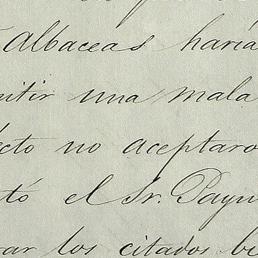 Albaceas haria
mitir una mala
ecto no aceptaro
tó el Sr. Payn
rar los citados bi